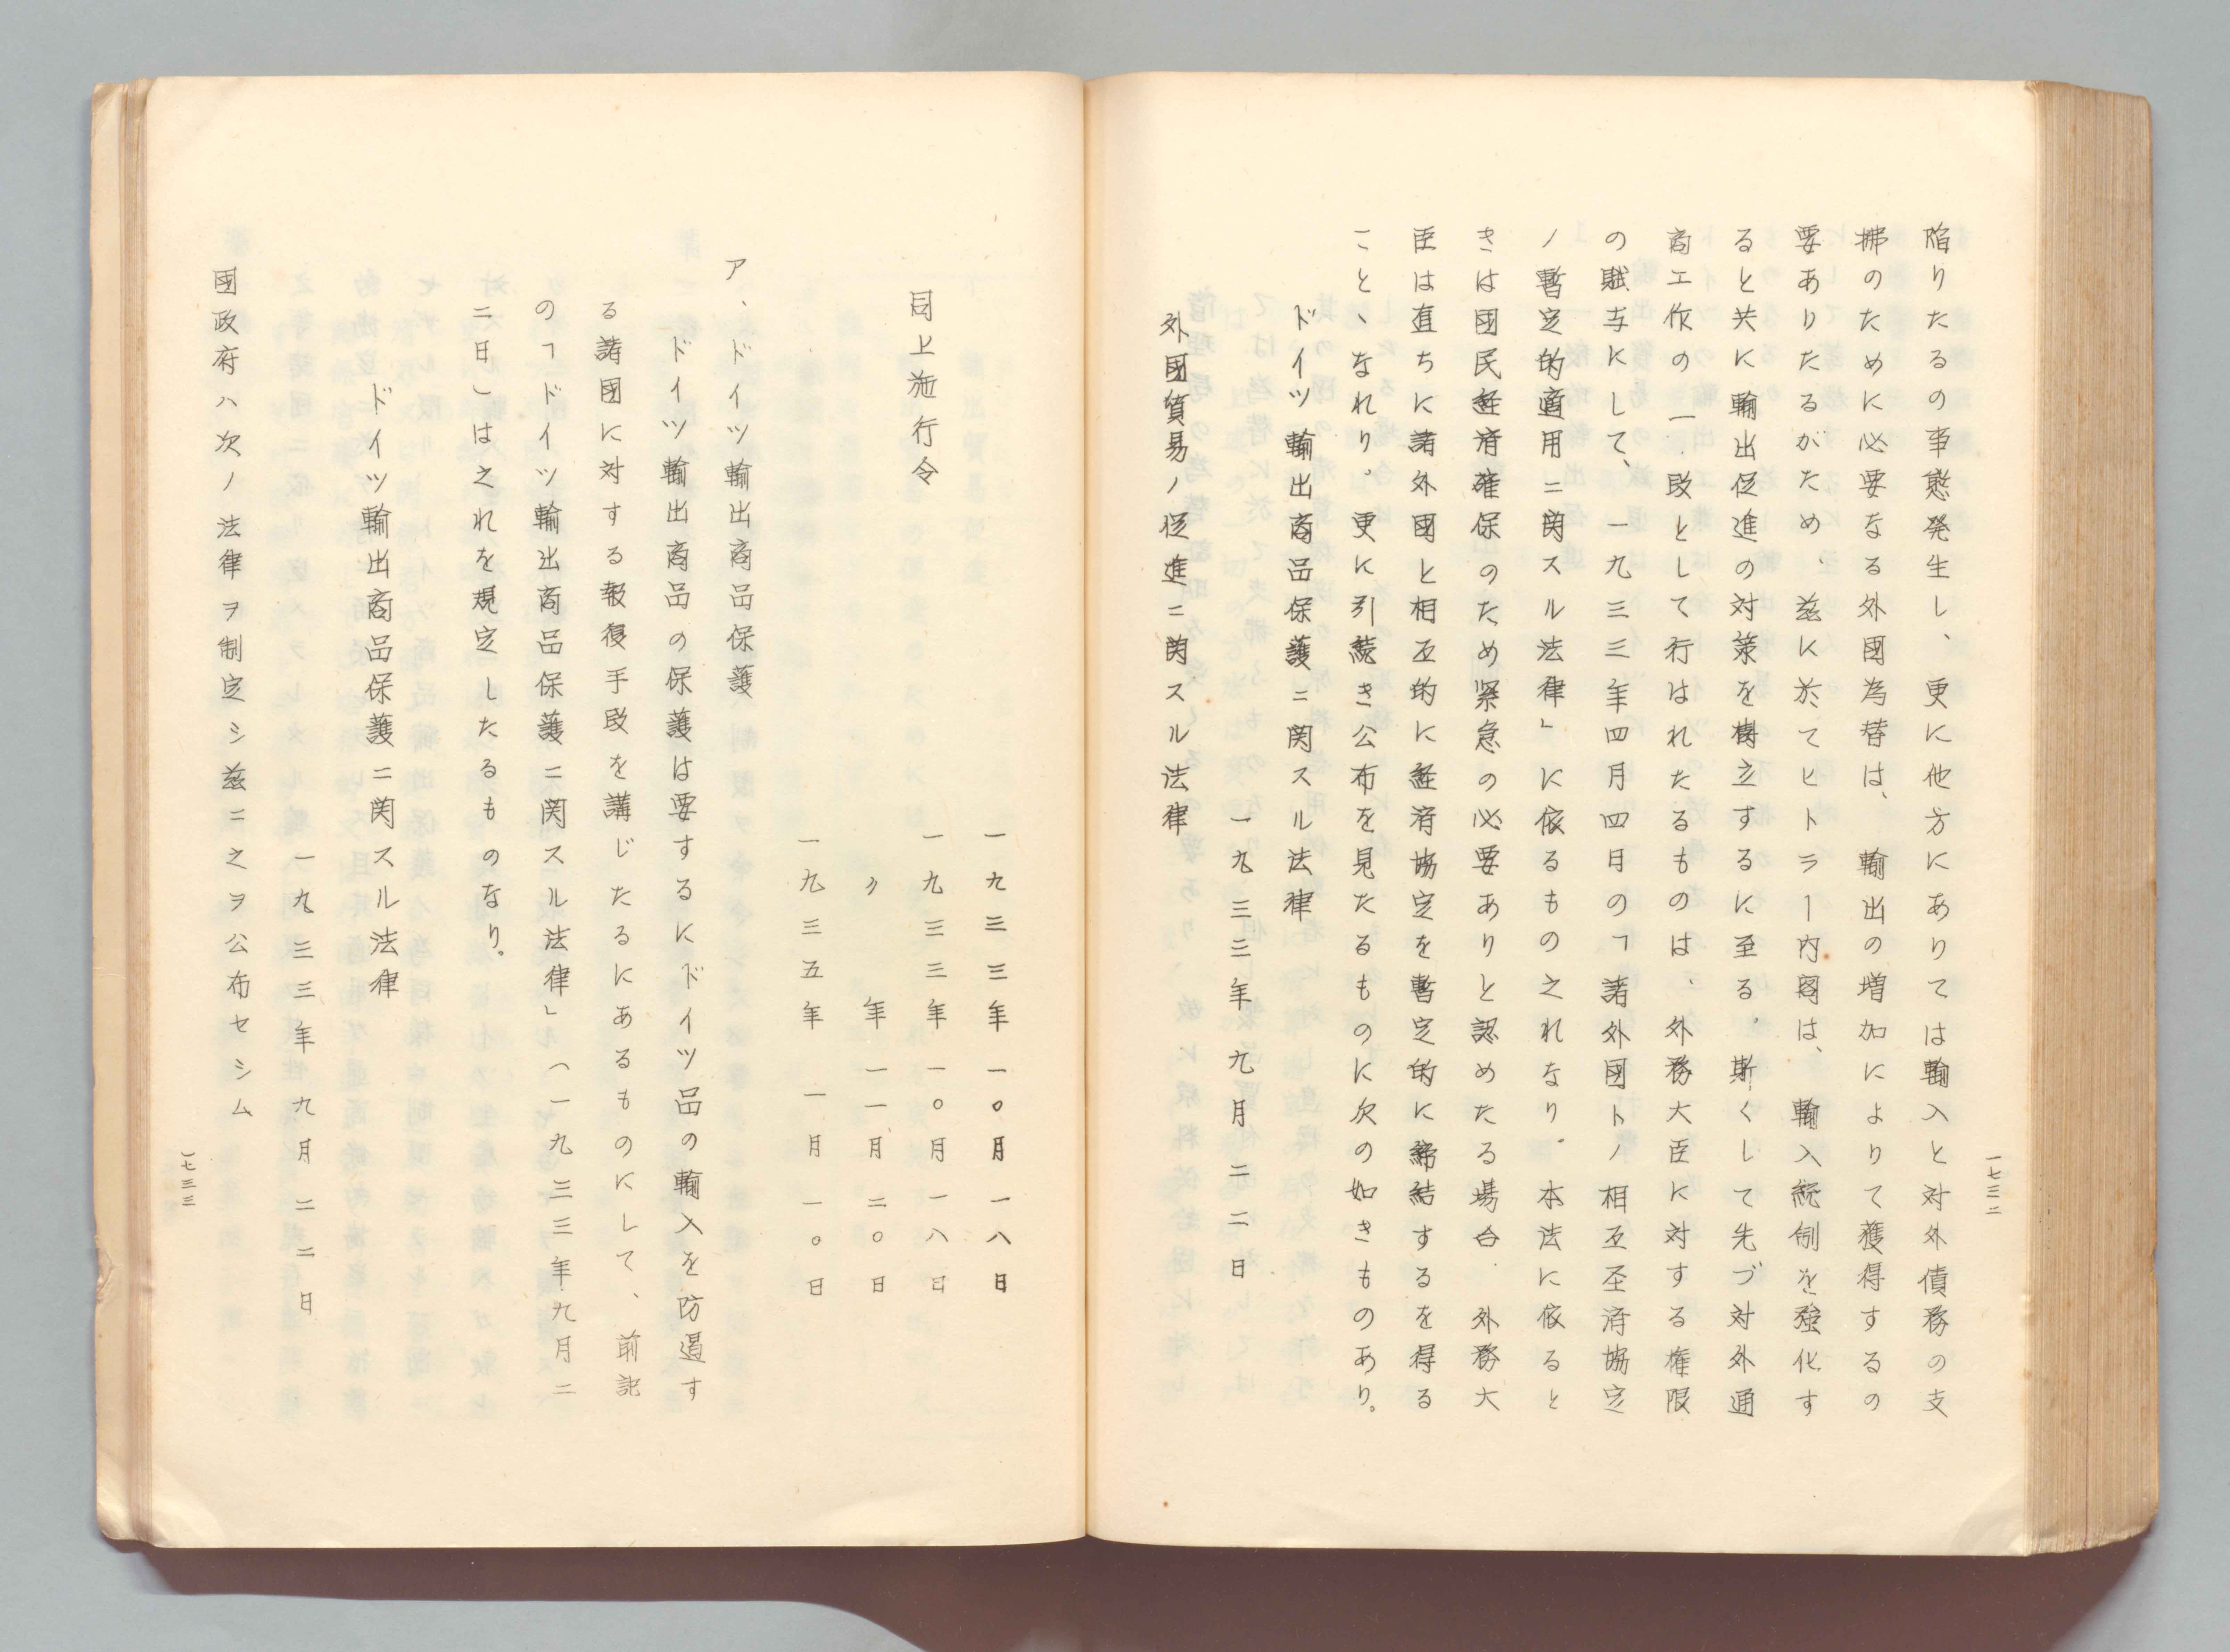 一七三二
陥りたるの事態発生し、更に他方にありては輸入と対外債務の支
拂のために必要なる外國為替は、輸出の増加によりて獲得するの
要ありたるがため、茲に於てヒトラー内閣は、輸入統制を強化す
ると共に輸出促進の対策を樹立するに至る。斯くして先づ対外通
商工作の一段として行はれたるものは、外務大臣に対する権限
の賦与にして、一九三三年四月四日の「諸外國トノ相互経済協定
ノ暫定的適用ニ関スル法律」に依るもの之れなり。本法に依ると
きは國民経済確保のため緊急の必要ありと認めたる場合、外務大
臣は直ちに諸外國と相互的に経済協定を暫定的に締結するを得る
こと丶なれり。更に引続き公布を見たるものに次の如きものあり。
ドイツ輸出商品保護ニ関スル法律
一九三三年九月二二日
外國貿易ノ促進ニ関スル法律
一九三三年一〇月一八日
同上施行令
一九三三年一〇月一八日
〃年一一月二〇日
一九三五年一月一〇日
ア、ドイツ輸出商品保護
ドイツ輸出商品の保護は要するにドイツ品の輸入を防遏す
る諸國に対する報復手段を講じたるにあるものにして、前記
の「ドイツ輸出商品保護ニ関スル法律」（一九三三年九月二
二日）は之れを規定したるものなり。
ドイツ輸出商品保護ニ関スル法律
一九三三年九月二二日
國政府ハ次ノ法律ヲ制定シ茲ニ之ヲ公布セシム
一七三三